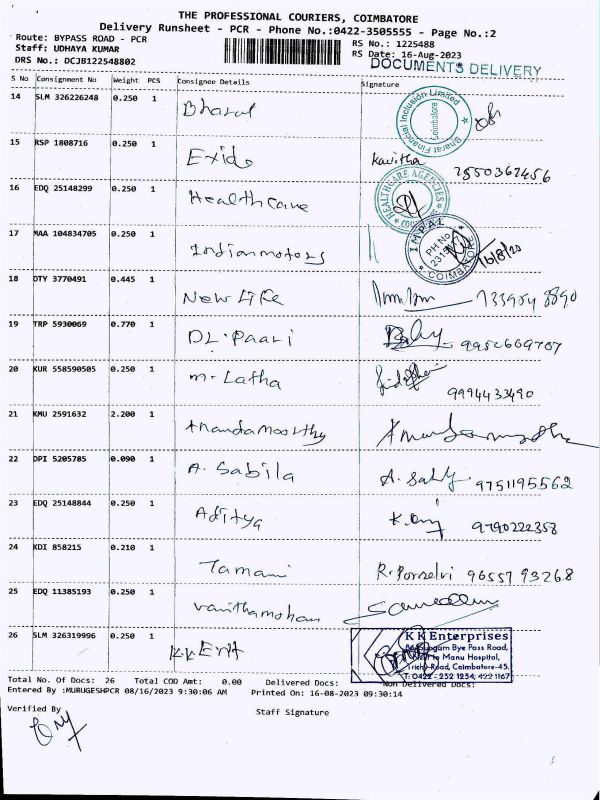 THE PROFESSIONAL COURIERS, COIMBATORE
Delivery Runsheet - PCR - Phone No.:0422-3505555 - Page No.:2
Route: BYPASS ROAD - PCR
Staff: UDHAYA KUMAR
DRS No.: DCJB122548802
RS No.: 1225488
RS Date: 16-Aug-2023
DOCUMENTS DELIVERY
S No Consignment No Weight PCS Consignee Details Signature
14 SLM 326226248 0.250 1 Bharat
Bharat Financial Inclusion Limited Coimbatore
15 RSP 1808716 0.250 1 Exide Kavitha 7550362456
16 EDQ 25148299 0.250 1 Healthcare
HEALTHCARE AGENCIES
17 MAA 104834705 0.250 1 Indianmotors
IMPAL PH No COIMBATORE
16/8/20
18 DTY 3770491 0.445 1 New Life
19 TRP 5930069 0.770 1 DL. Paari 9952669707
20 KUR 558590505 0.250 1 M. Latha 9994433490
21 KMU 2591632 2.200 1 Anandamoorthy
22 DPI 5205785 0.090 1 A. Sabila 9751195562
23 EDQ 25148844 0.250 1 Aditya 9790222358
24 KDI 858215 0.210 1 Tamani R. Porselvi 96557 93268
25 EDQ 11385193 0.250 1 Vanithamohan
26 SLM 326319996 0.250 1 KK Ent
KK Enterprises
Bye Pass Road,
to Manu Hospital,
Trichy Road, Coimbatore-45.
T: 0422-232 1234, 422 1167
Total No. Of Docs: 26 Total COD Amt: 0.00 Delivered Docs: Non Delivered Docs:
Entered By :MURUGESHPCR 08/16/2023 9:30:06 AM Printed On: 16-08-2023 09:30:14
Verified By Staff Signature